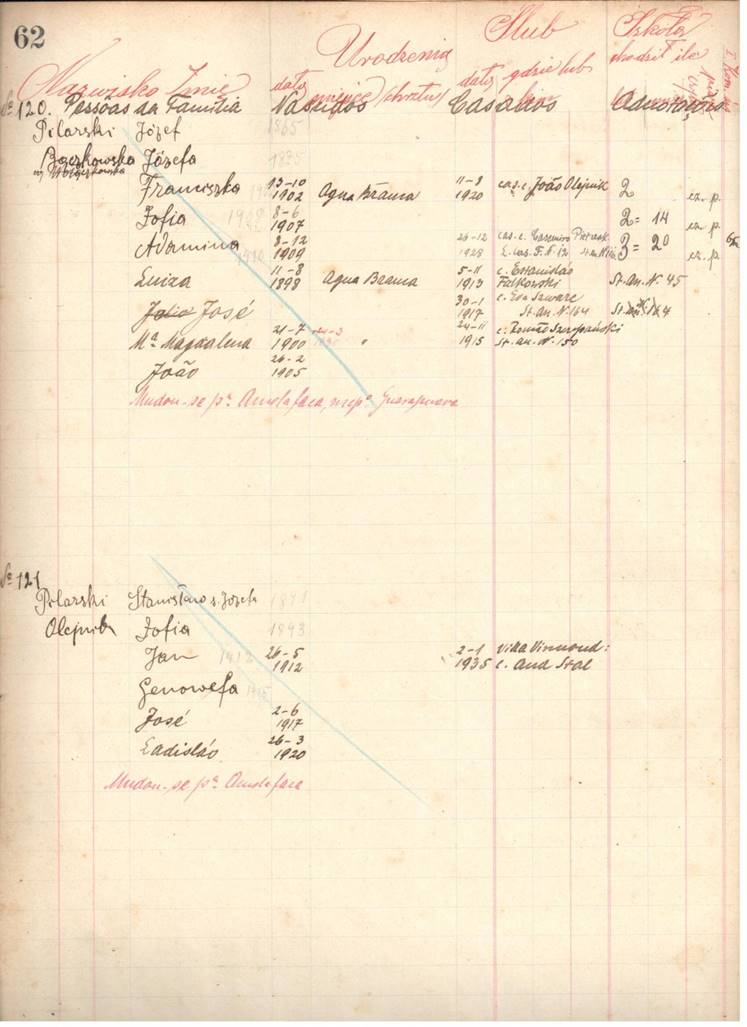 62
Urodzenia Ślub Szkoła
Nazwisko Imię data miejsce chrztu data gdzie lub chodził ile
No 120. Pessoas da Familia Nascidos Casados
Pilarski Józef 1865
Józefa
Franciszka 13-10 1902 Agua Branca 11-8 1920 cas. c. João Olejnik 2 ez. p.
Zofia 8-6 1907 2 = 14 ez. p.
Adamina 8-12 1909 26-12 1928 c. Casemiro 3 = 20 ez. p.
Luiza 11-8 1898 Agua Branca 5-11 1913 c. Estanisláo Falkowski St. An. N. 45
José 30-1 1917 St. An. N. 164
Ma Magdalena 21-7 1900 " 24-11 1915 St. An. N. 150
João 26-2 1905
Mudou-se pa. Amola faca, mcpo. Guarapuava
No 121
Pilarski Stanisław s. Józefa 1891
Olejnik Zofia 1893
Jan 1912 26-5 1912 2-1 1935 Villa Virmond:
Genowefa
José 2-6 1917
Ladisláo 26-3 1920
Mudou-se pa. Amola faca